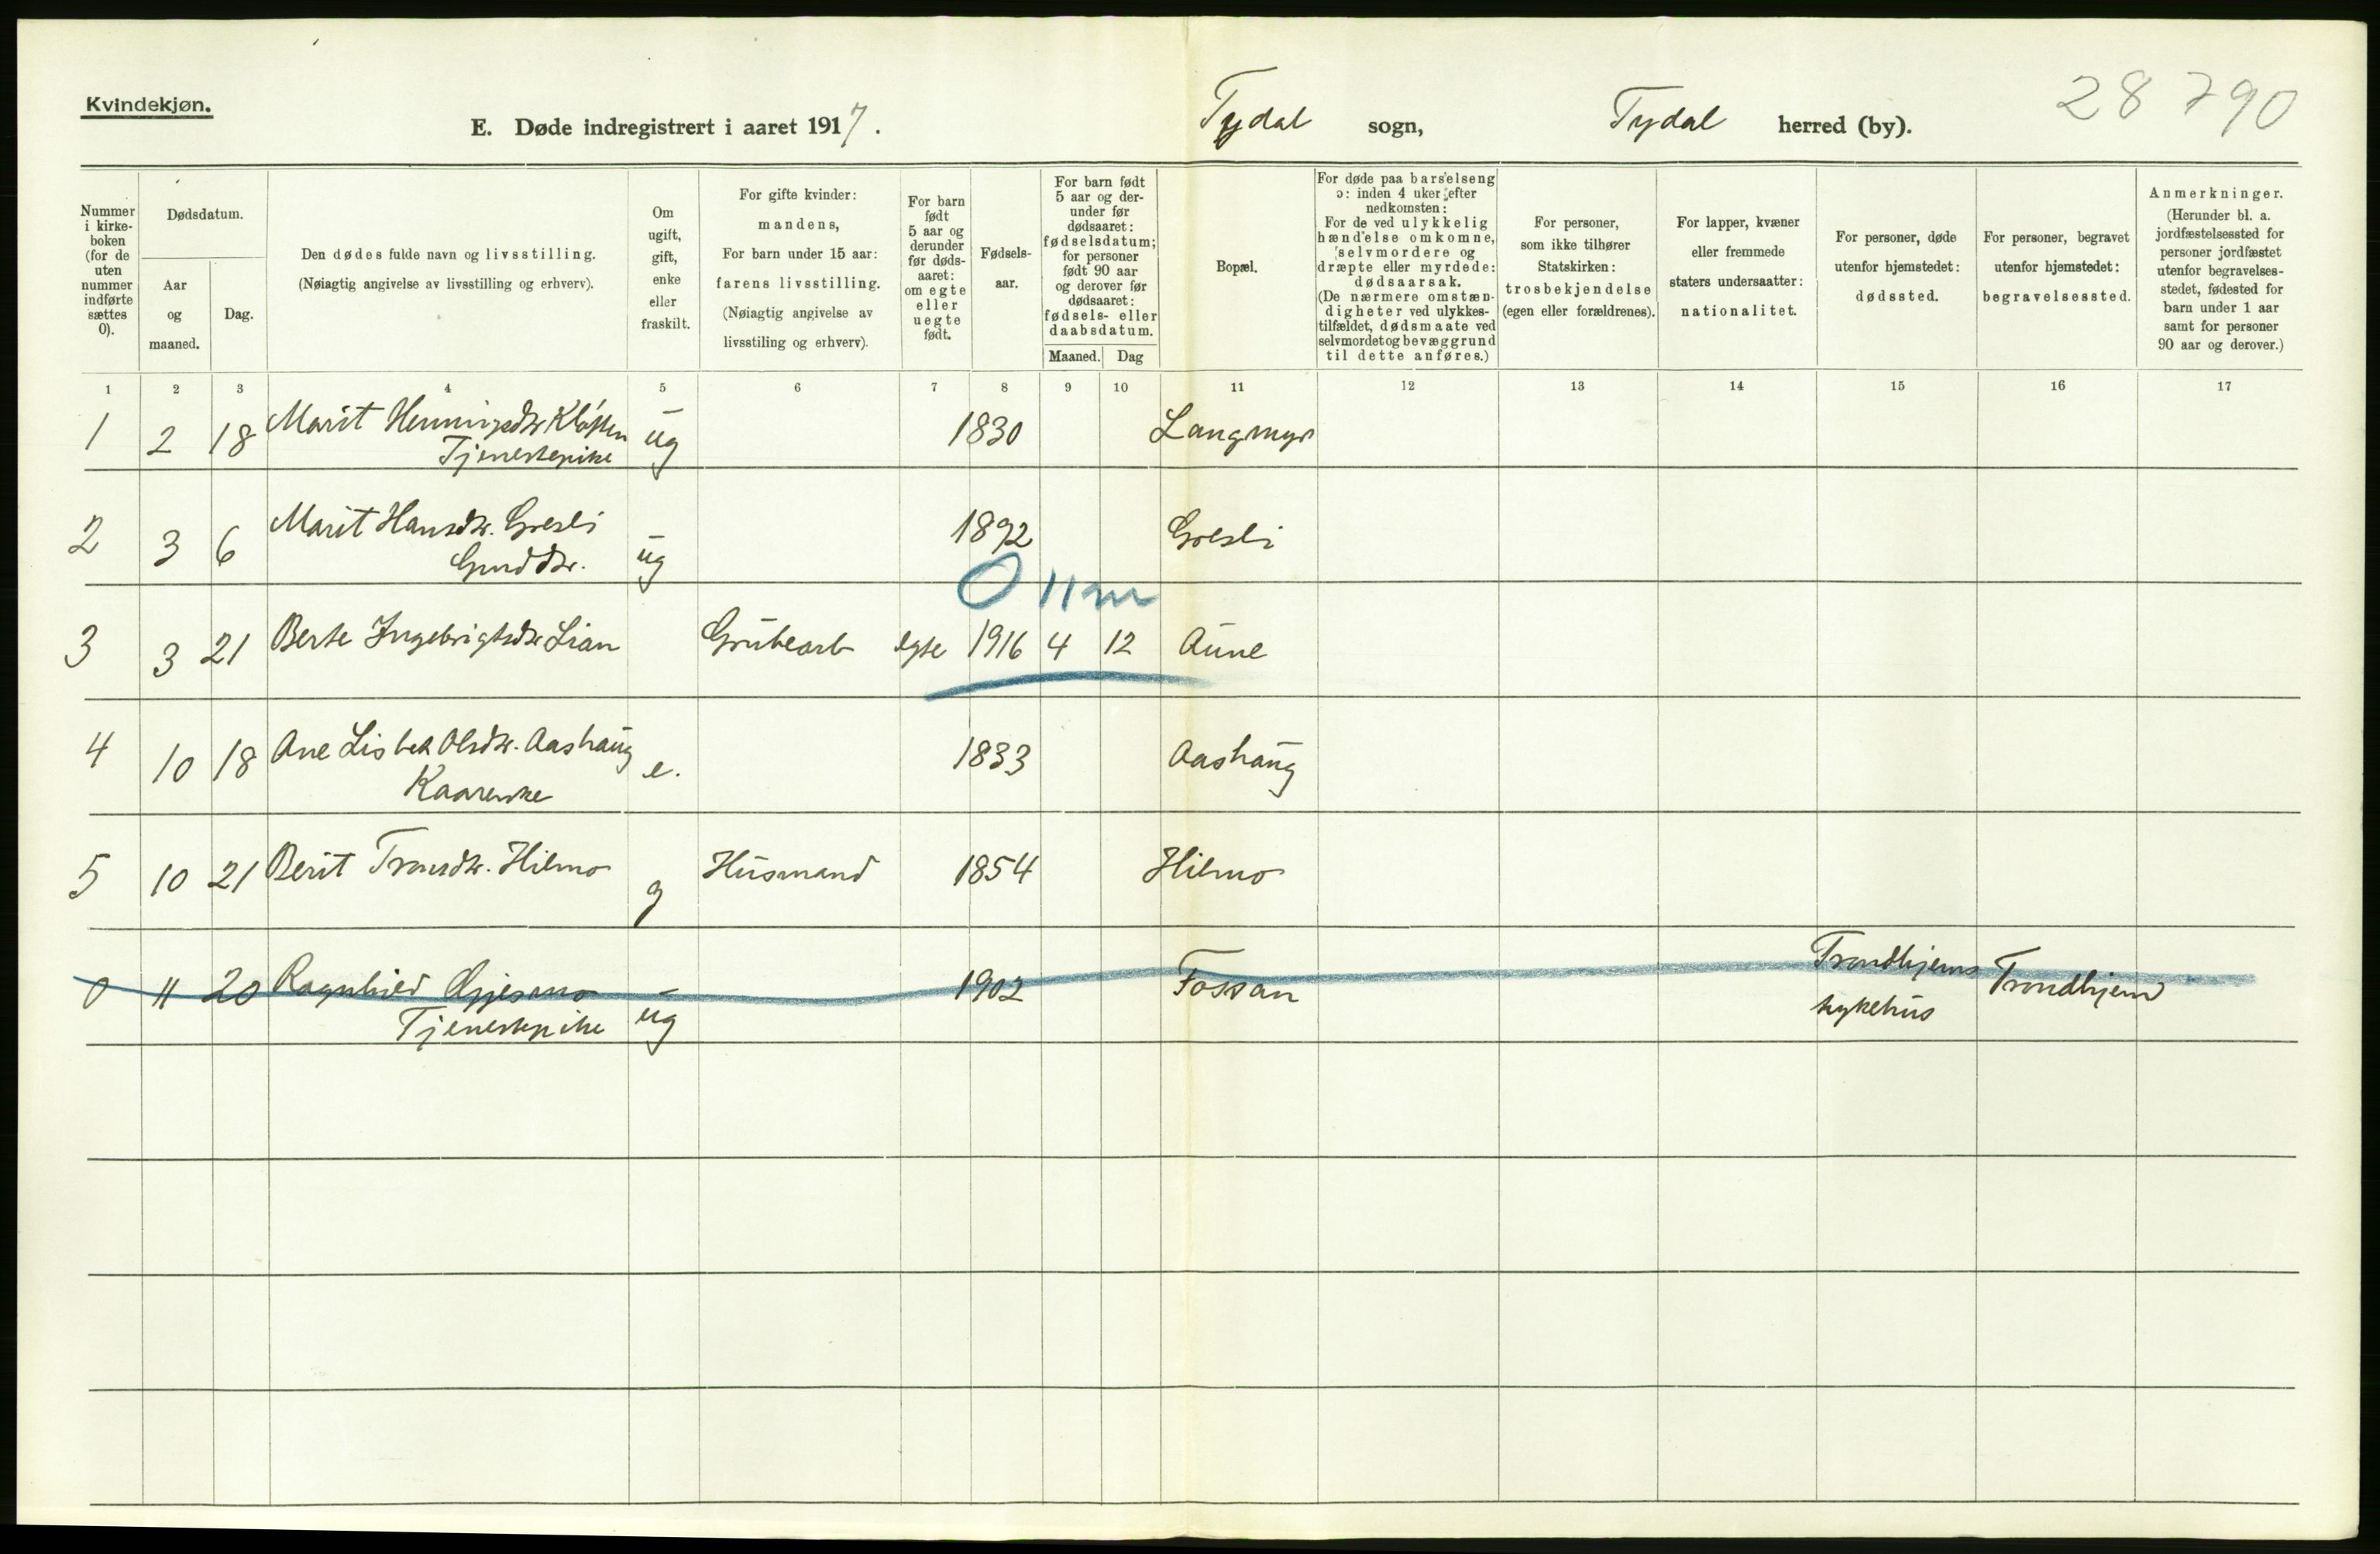 Kvindekjøn.
E. Døde indregistrert i aaret 1917.
Tydal sogn,
Tydal herred (by).
28 790
Nummer i kirke- boken (for de uten nummer indførte sættes 0).
Dødsdatum.
Aar og maaned.
Dag.
Den dødes fulde navn og livsstilling.
(Nøiagtig angivelse av livsstilling og erhverv).
Om ugift, gift, enke eller fraskilt.
For gifte kvinder:
mandens,
For barn under 15 aar:
farens livsstilling.
(Nøiagtig angivelse av
livsstiling og erhverv).
For barn født 5 aar og derunder før døds- aaret: om egte eller uegte født.
Fødsels- aar.
For barn født 5 aar og der- under før dødsaaret: fødselsdatum; for personer født 90 aar og derover før dødsaaret: fødsels- eller daabsdatum.
Maaned. Dag
Bopæl.
For døde paa barselseng
ɔ: inden 4 uker efter
nedkomsten:
For de ved ulykkelig
hændelse omkomne,
selvmordere og
dræpte eller myrdede:
dødsaarsak.
(De nærmere omstæn-
digheter ved ulykkes-
tilfældet, dødsmaate ved
selvmordet og bevæggrund
til dette anføres.)
For personer,
som ikke tilhører
Statskirken:
trosbekjendelse
(egen eller forældrenes).
For lapper, kvæner
eller fremmede
staters undersaatter:
nationalitet.
For personer, døde
utenfor hjemstedet:
dødssted.
For personer, begravet
utenfor hjemstedet:
begravelsessted.
Anmerkninger.
(Herunder bl. a.
jordfæstelsessted for
personer jordfæstet
utenfor begravelses-
stedet, fødested for
barn under 1 aar
samt for personer
90 aar og derover.)
1 2 3 4 5 6 7 8 9 10 11 12 13 14 15 16 17
1 2 18 Marit Henningsdtr Kløften ug 1830 Langmyr
Tjenestepike
2 3 6 Marit Hansdtr. Gresli ug 1892 Gresli
Gmddtr.
0 11 m
3 3 21 Berte Ingebrigtsdtr Lian Grubearb egte 1916 4 12 Aune
4 10 18 Ane Lisbet Olsdtr. Aashaug e. 1833 Aashaug
Kaarenke
5 10 21 Berit Tronsdtr. Hilmo g Husmand 1854 Hilmo
0 11 20 Ragnhild Gjesmo ug 1902 Fossan Trondhjems Trondhjem
Tjenestepike sykehus